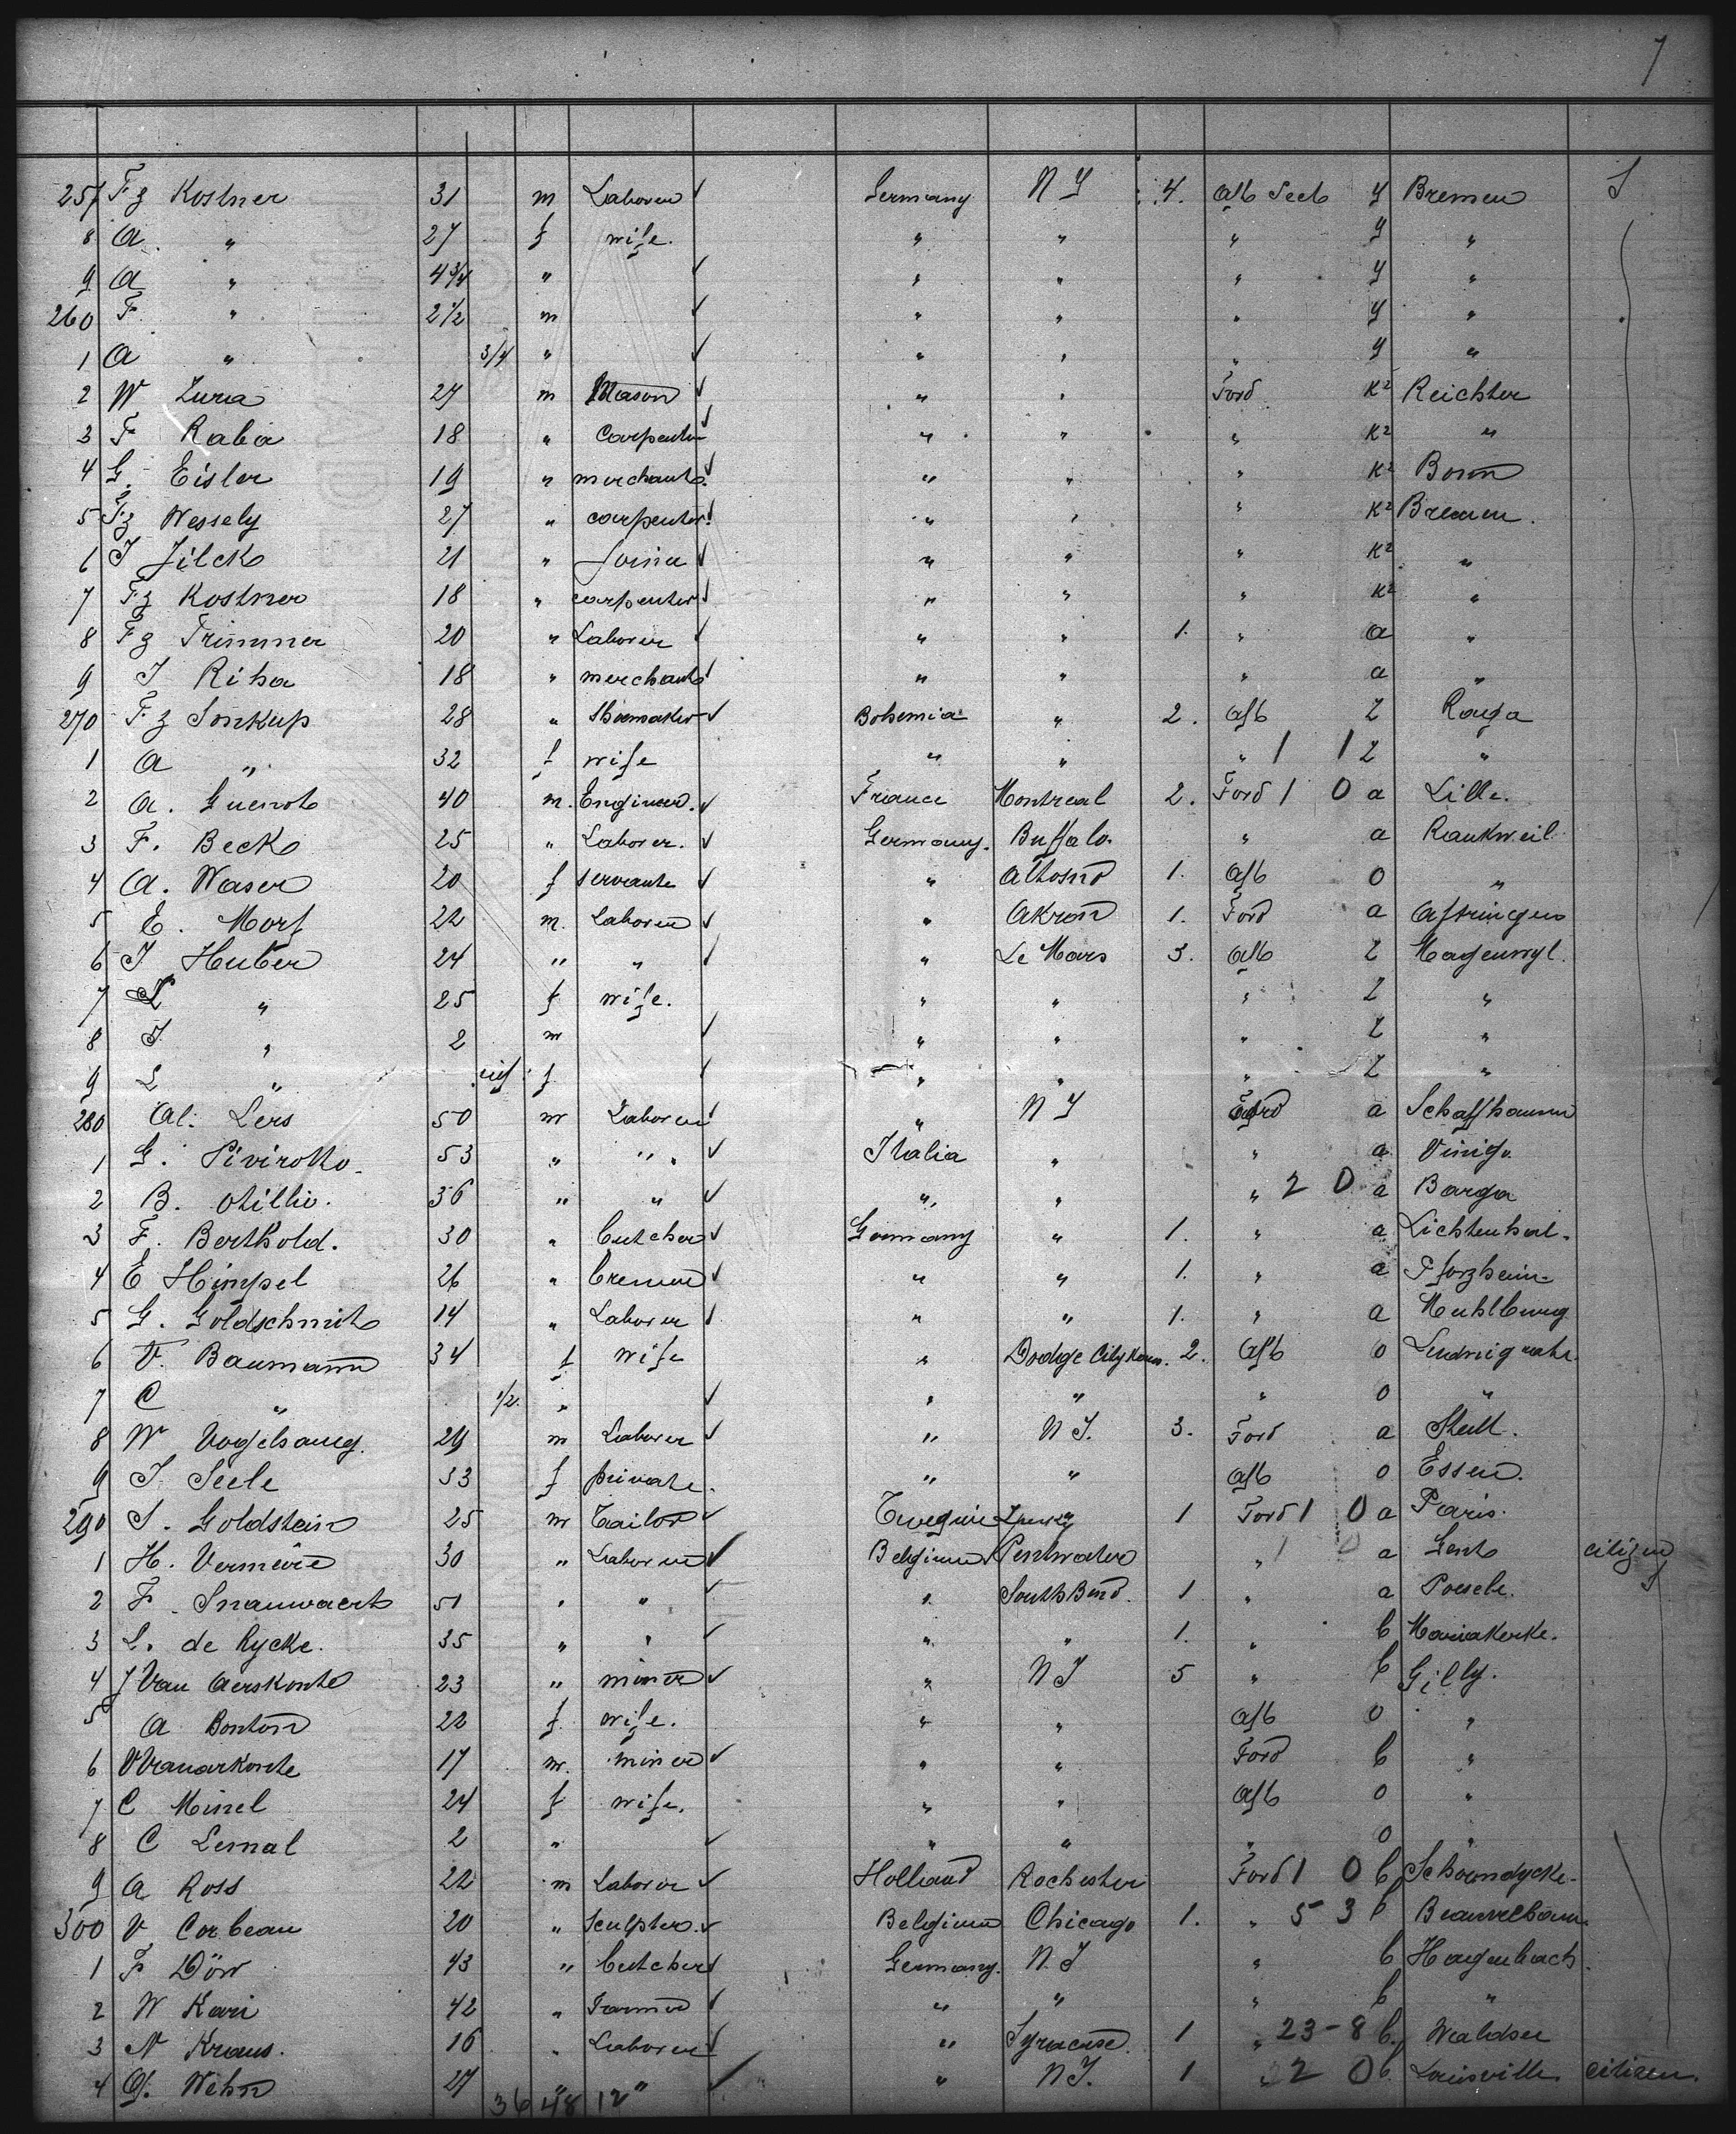 7
257 Fz Kostner 31 m Laborer ✓ Germany N Y 4. Aft Seeb Y Bremen S
8 A " 27 f wife. " " " Y "
9 A " 4 3/4 " ✓ " " " Y "
260 F " 2 1/2 m ✓ " " " Y "
1 A " 3/4 " ✓ " " " Y "
2 W Zuria 27 m Mason ✓ " " Ford K2 Reichter
3 F Raba 18 " Carpenter ✓ " " " K2 "
4 G. Eisler 19 " merchant ✓ " " " K2 Bonn
5 Fz Wessely 27 " carpenter ✓ " " " K2 Bremen.
6 J Jilck 21 " Joiner ✓ " " " K2 "
7 Fz Kostner 18 " carpenter ✓ " " " K2 "
8 Fz Trimmer 20 " Laborer ✓ " " 1. " a "
9 J Riha 18 " merchant ✓ " " " a "
270 Fz Soukup 28 " Shoemaker ✓ Bohemia " 2. Aft Z
1 A " 32 f wife " " " 1 1 Z "
2 A. Guenot 40 m. Engineer. ✓ France Montreal 2. Ford 1 0 a Lille.
3 F. Beck 25 " Laborer. ✓ Germany. Buffalo. " a Rankweil
4 A. Waser 20 f servant ✓ " 1. Aft O "
5 E. Morf 22 m. Laborer ✓ " Akron 1. Ford a Aftringen
6 J Huber 24 " " ✓ " Le Mars 3. Aft Z Hagenwyl.
7 L " 25 f wife. " " " Z "
8 J. " 2 m ✓ " " " Z "
9 L " inf f ✓ " " " Z "
280 Al. Lers 50 m Laborer ✓ " N Y Ford a Schaffhausen
1 G. Pivirotto. 53 " " ✓ Italia " " a Vinigo.
2 B. Otillio. 36 " " ✓ " " " 2 0 a Barga
3 F. Berthold. 30 " Butcher ✓ Germany " 1. " a Lichtenthal.
4 E Himpel 26 " ✓ " " 1. " a Pforzheim.
5 G. Goldschmit 14 " Laborer ✓ " " 1. " a Muhlburg
6 V. Baumann 34 f wife " Dodge City Kans. 2. Aft O
7 C " 1/2. " ✓ " " " O "
8 W Vogelsang. 29 m Laborer ✓ " N Y. 3. Ford a
9 J. Seele 33 f private. " " Aft O Essen.
290 S. Goldstein 25 m Tailor ✓ 1 Ford 1 0 a Paris.
1 H. Vermeire 30 " Laborer ✓ Belgium Pentwater " 1 0 a Gent citizen
2 F. Snauwaert 51 " " ✓ " South Bend. 1 " a Poesele.
3 L. de Rycke. 35 " " ✓ " " 1. " b Mariakerke.
4 J Van Aerskonte 23 " miner ✓ " N Y 5 " b Gilly.
5 A Bonton 22 f. wife. " " Aft O "
6 V Vanarkonte 17 m. miner ✓ " " Ford b "
7 C Minel 24 f wife. " " Aft O "
8 C Lemal 2 " ✓ " " " O "
9 A Ross 22 m Laborer ✓ Holland Rochester Ford 1 0 b Schoondycke.
300 V Corbeau 20 " Sculpter. ✓ Belgium Chicago 1. " 5 3 b
1 F Dörr 43 " Butcher ✓ Germany. N. Y " b Hagenbach.
2 W Kari 42 " Farmer ✓ " " " b "
3 N Kraus. 16 " Laborer ✓ " Syracuse. 1 " 23-8 b. Waldsee
4 G. Wehn 27 " " ✓ " N Y. 1 " 2 0 b. Louisville. citizen.
36 48 12